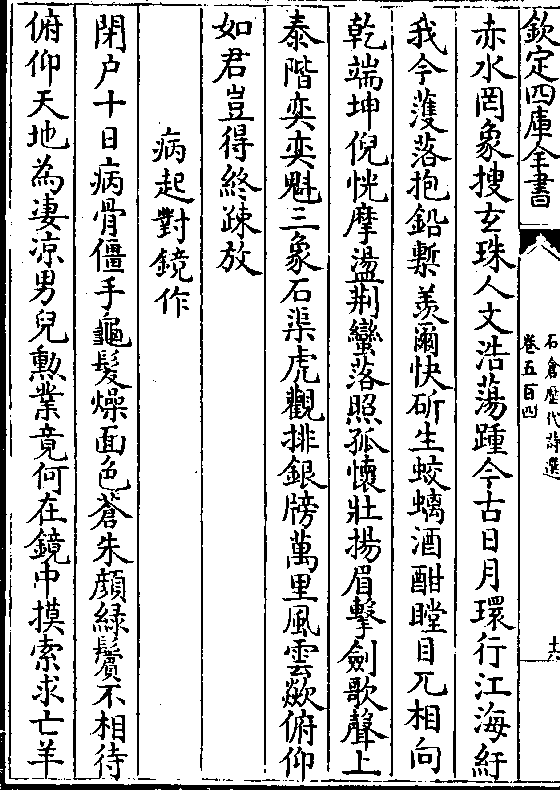 欽定四庫全書
石倉歷代詩選
卷五百四
十六
赤水罔象搜玄珠人文浩蕩踵今古日月環行江海紆
我今濩落抱鉛槧羡爾快斫生蛟螭酒酣瞠目兀相向
乾端坤倪恍摩盪荆蠻落照孤懷壯揚眉擊劍歌聲上
泰階奕奕魁三象石渠虎觀排銀牓萬里風雲歘俯仰
如君豈得終疎放
病起對鏡作
閉户十日病骨僵手龜髮燥面色蒼朱顏緑鬢不相待
俯仰天地為凄涼男兒勲業竟何在鏡中摸索求亡羊